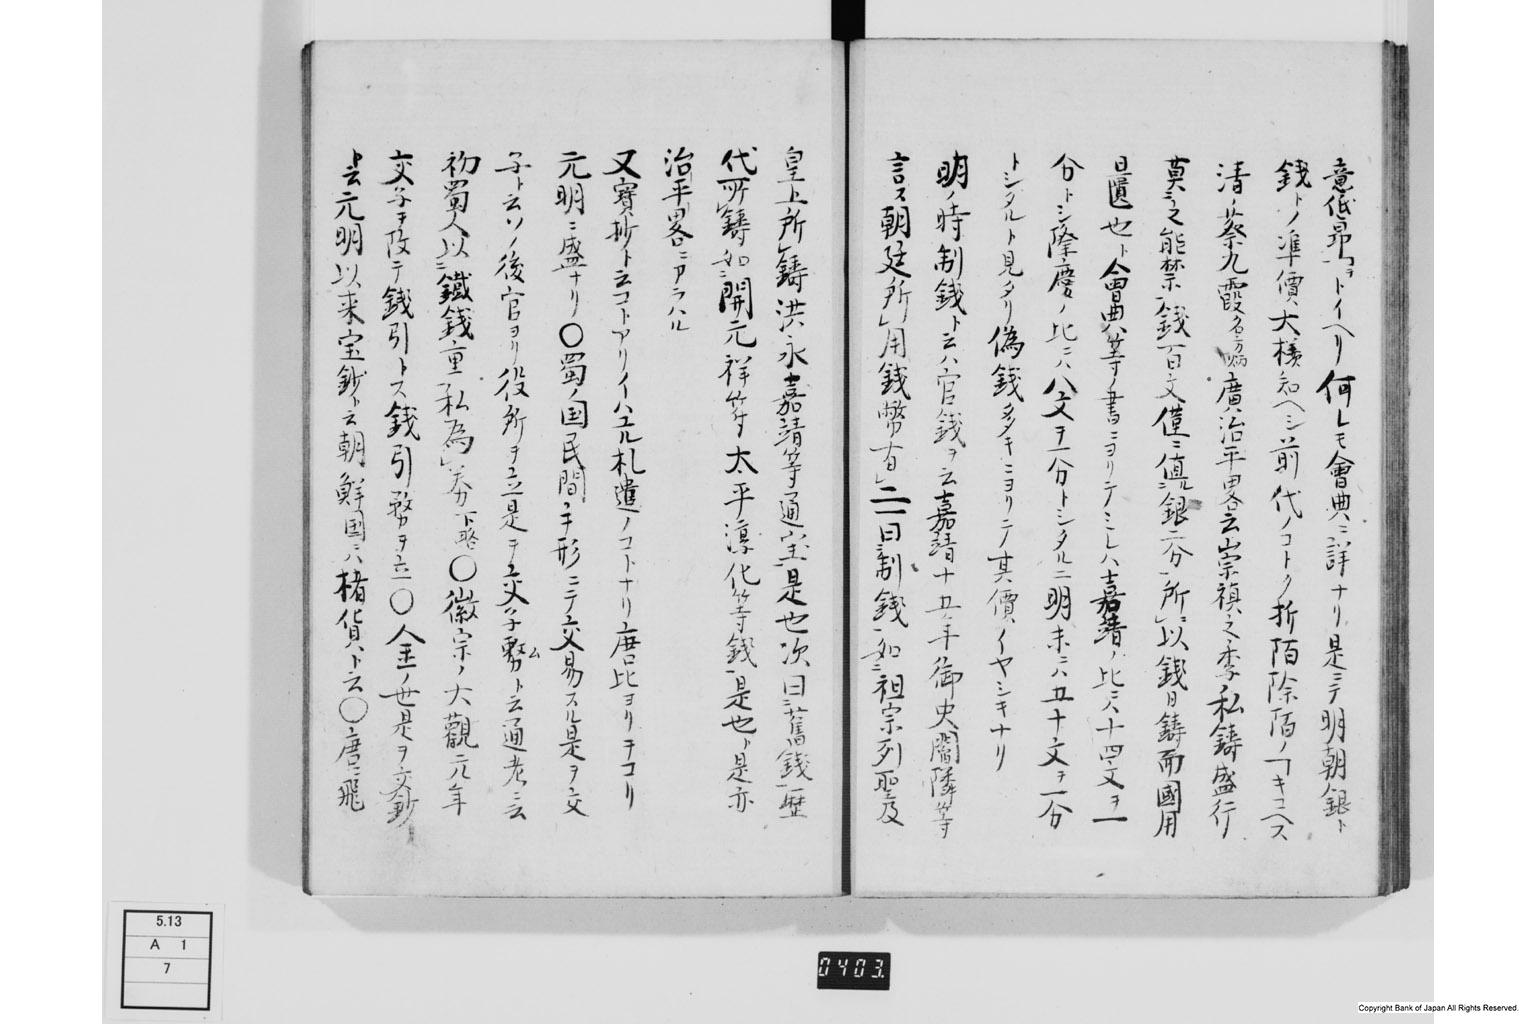 意低昂ヲトイヘリ何レモ會典ニ詳ナリ是ニテ明朝銀ト
錢トノ準價大様知ヘシ前代ノコトク折陌除陌ノコキコヘス
清ノ蔡九霞名方炳廣治平畧云崇禎之季私鑄盛行
莫之能禁錢百文僅ニ値銀二分所以錢日鑄而國用
日匱也ト會典等ノ書ニヨリテミレハ嘉靖ノ比ハ十四文ヲ一
分トシ隆慶ノ比ニハ八文ヲ一分トシタルニ明末ニハ五十文ヲ一分
トシタルト見タリ偽錢多キニヨリテ其價イヤシキナリ
明ノ時制錢ト云ハ官錢ヲ云嘉靖十五年御史閻隣等
言ス朝廷所用錢幣有二一曰制錢如祖宗列聖及
皇上所鑄洪永嘉靖等通宝是也次曰舊錢歴
代所鑄如開元祥符太平淳化等錢是也ト是亦
治平畧ニアラハル
又寳抄ト云コトアリイハユル札遣ノコトナリ唐比ヨリヲコリ
元明ニ盛ナリ〇蜀ノ国民間手形ニテ交易スル是ヲ交
子ト云ソノ後官ヨリ役所ヲ立是ヲ交子務ト云通考ニ云
初蜀人以鐵錢重私為券下略〇徽宗ノ大觀元年
交子ヲ改テ錢引トス錢引務ヲ立〇金ノ世是ヲ交鈔
ト云元明以来宝鈔ト云朝鮮国ニハ楮貨ト云〇唐ニ飛
5.13
A 1
7
0403.
Copyright Bank of Japan All Rights Reserved.